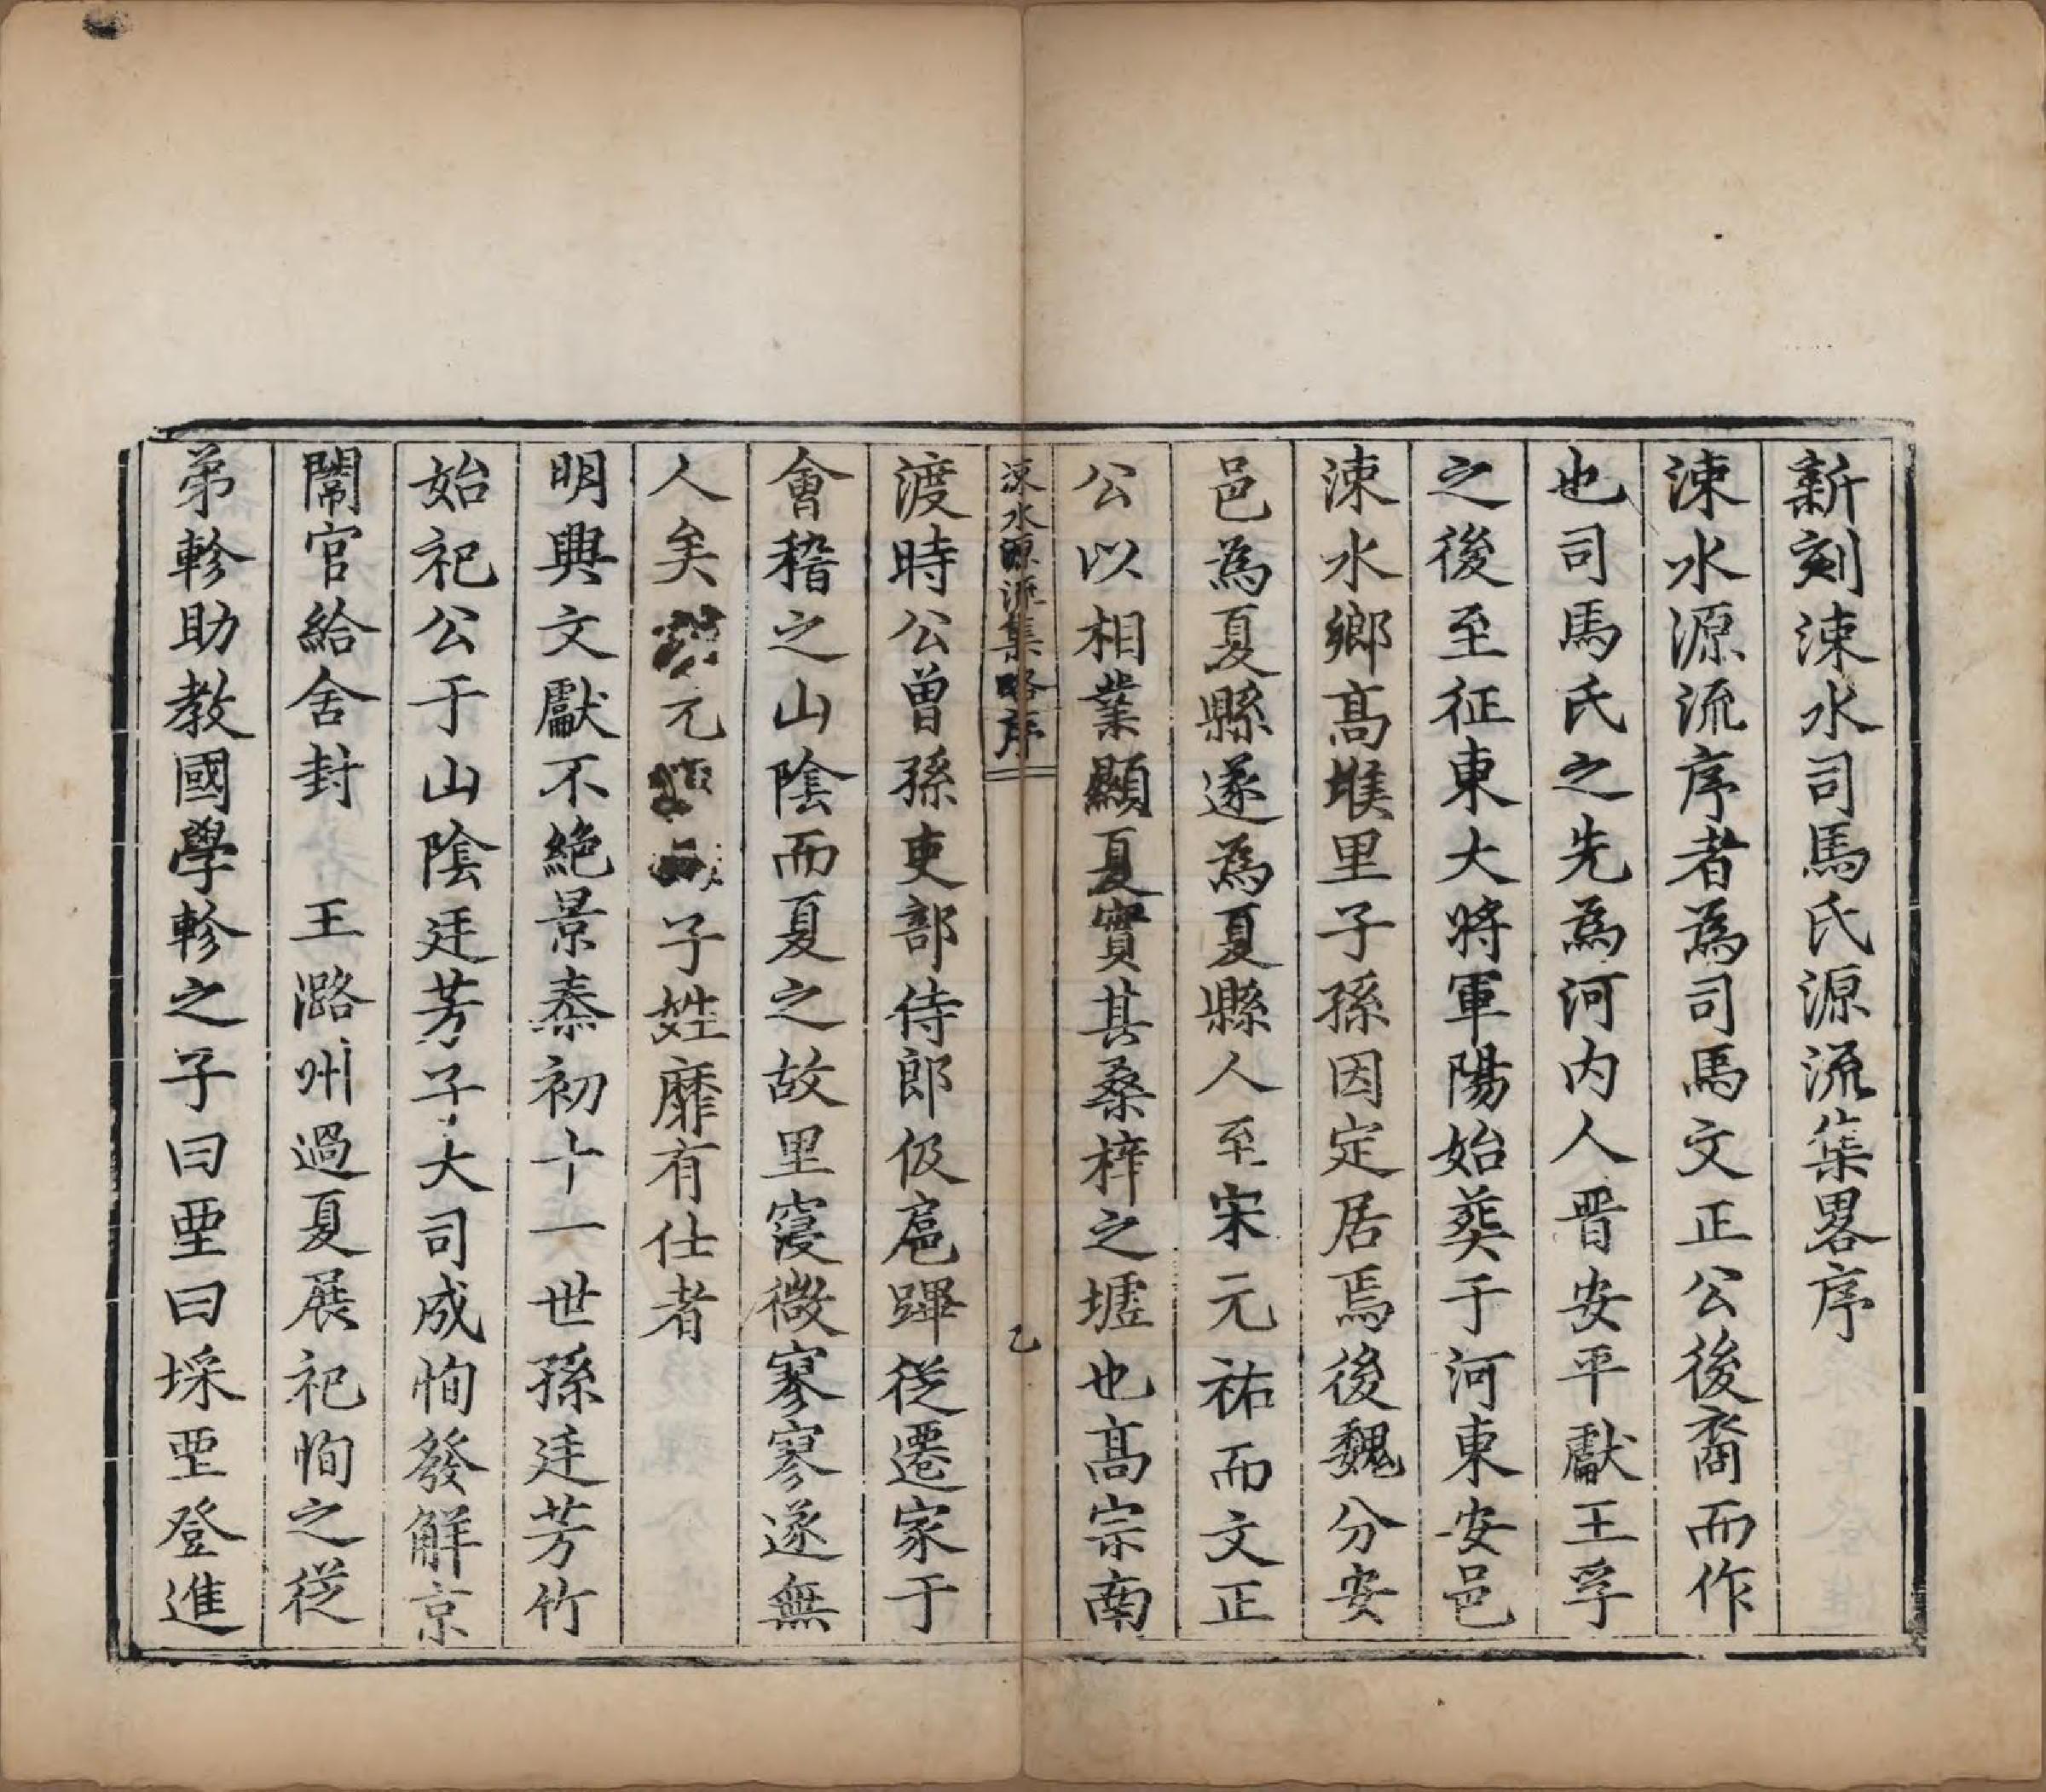 新刻涑水司馬氏源流集畧序
涑水源流序者為司馬文正公後裔而作
也司馬氏之先為河内人晋安平獻王孚
之後至征東大將軍陽始葬于河東安邑
涑水鄉高堠里子孫因定居焉後魏分安
邑為夏縣遂為夏縣人至宋元祐而文正
公以相業顯夏實其桑梓之墟也高宗南
涑水源流集略序 乙
渡時公曾孫吏部侍郎伋扈蹕從遷家于
會稽之山陰而夏之故里寖微寥寥遂無
人矣元子姓靡有仕者
明興文獻不絶景泰初十一世孫廷芳竹
始祀公于山陰廷芳子大司成恂發解京
闈官給舍封 王潞州過夏展祀恂之從
弟軫助教國學軫之子曰垔曰埰垔登進